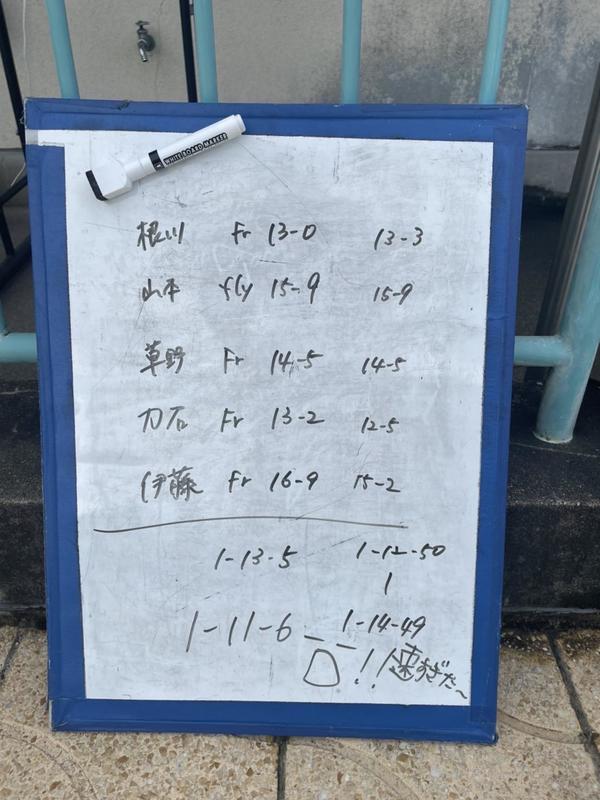 WHITE BOARD MARKER
根川 Fr 13-0 13-3
山本 fly 15-9 15-9
草野 Fr 14-5 14-5
力石 Fr 13-2 12-5
伊藤 Fr 16-9 15-2
1-13-5 1-12-50
1
1-11-6 1-14-49
!! 速すぎた〜